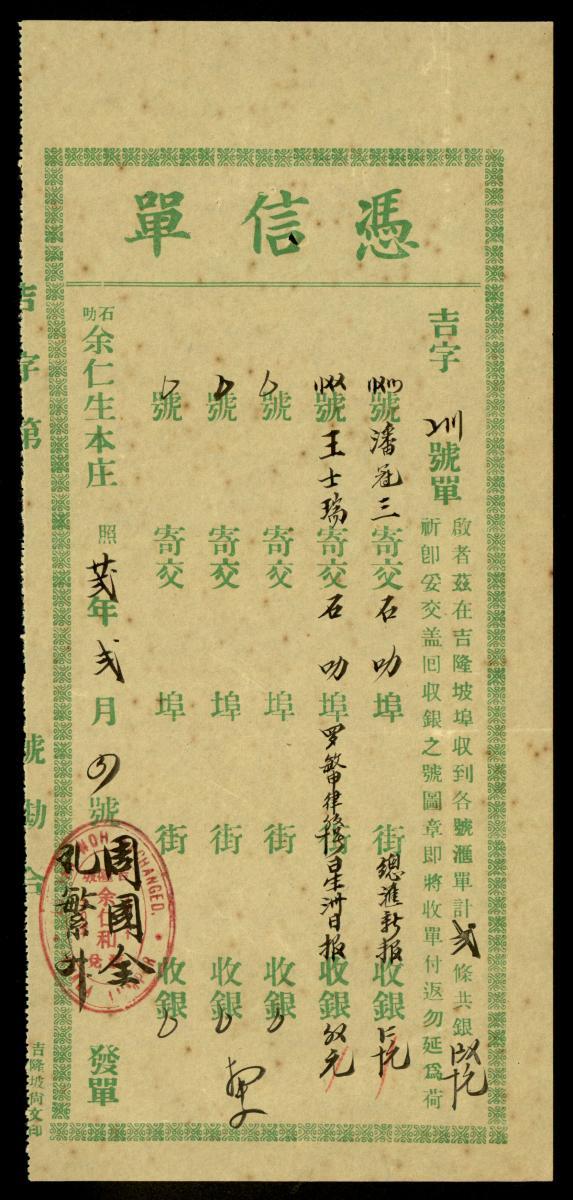 憑信單
吉字 號單
啟者茲在吉隆坡埠收到各號滙單計 弍 條共銀
祈卽妥交盖囘收銀之號圖章即將收單付返勿延爲荷
號 潘冠三 寄交 石叻 埠 街 總滙新报 收銀
號 王士瑞 寄交 石叻 埠 罗敏申律 星洲日报 收銀
號 寄交 埠 街 收銀
號 寄交 埠 街 收銀
號 寄交 埠 街 收銀
石叻 余仁生本庄 照
年 弍 月 號
周國全
孔繁
發單
余仁和
CHANGED.
吉字第 號勘合
吉隆坡尚文印